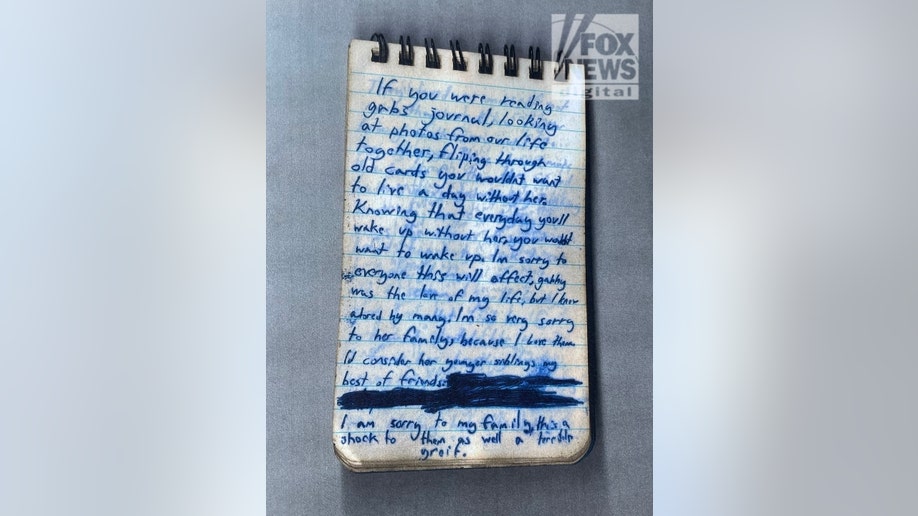 FOX
NEWS
digital
If you were reading
gabs journal, looking
at photos from our life
together, fliping through
old cards you wouldnt want
to live a day without her.
Knowing that everyday you'll
wake up without her, you wouldnt
want to wake up. Im sorry to
everyone this will affect, gabby
was the love of my life, but I know
adored by many. Im so very sorry
to her family, because I love them.
I'd consider her younger siblings my
best of friends
I am sorry to my family, this is a
shock to them as well a terrible
greif.